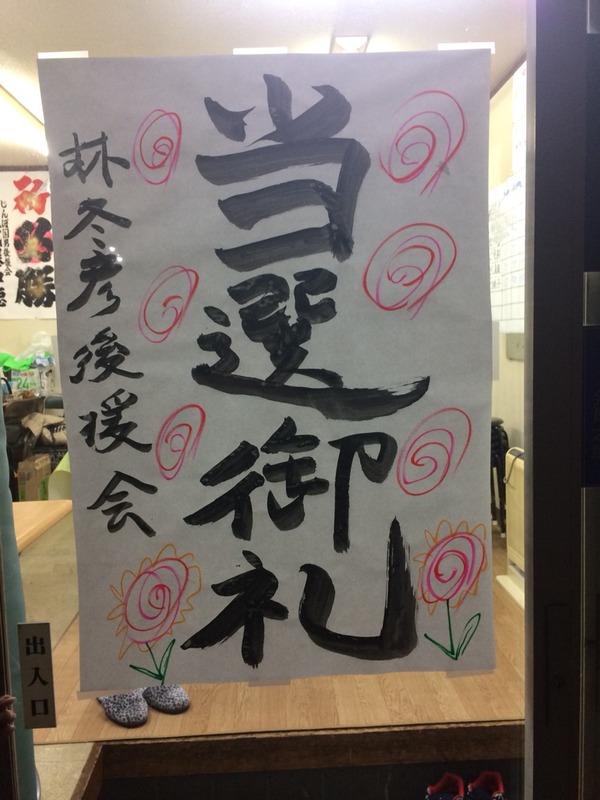 当選御礼
林冬彦後援会
必勝
出入口